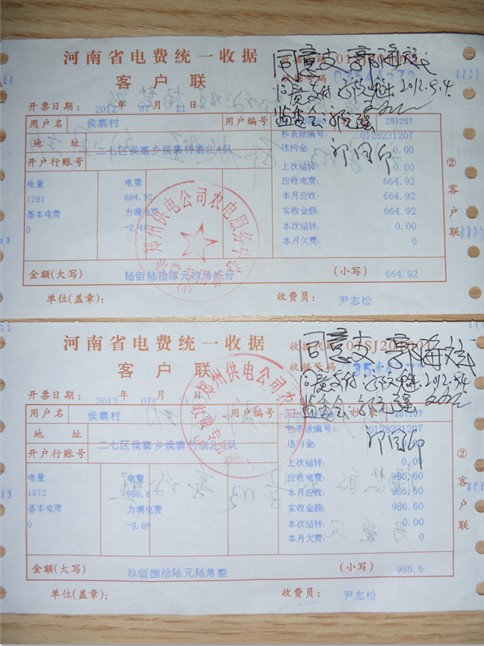 河南省电费统一收据
客户联
开票日期: 2012 年 07 月 21
用户名 侯寨村 用户编号
201207
地址 二七区侯寨乡侯寨村寨北4队
抄表段编号: 0128231207
违约金: 0.00
开户行账号
上次结转: 0.00
电量 电费 应收电费: 664.92
1281 664.92 本月应收: 664.92
基本电费 力调电费 实收金额: 664.92
0 本次结转: 0.00
本月欠费: 0.00
金额(大写) 陆佰陆拾肆元玖角贰分 (小写) 664.92
单位(盖章): 收费员: 尹志松
②客户联
同意支
郑州供电公司农电服务
河南省电费统一收据
客户联
开票日期: 2012 年 07
用户名 侯寨村 用户编号
201207
地址 二七区侯寨乡侯寨村
0128231207
违约金: 0.00
开户行账号
上次结转: 0.00
电量 电费 应收电费: 986.60
1872 986.6 本月应收: 986.60
基本电费 力调电费 实收金额: 986.60
0 -3.69 本次结转: 0.00
本月欠费: 0.00
金额(大写) 玖佰捌拾陆元陆角整 (小写) 986.6
单位(盖章): 收费员: 尹志松
②客户联
同意支
郑州供电公司农